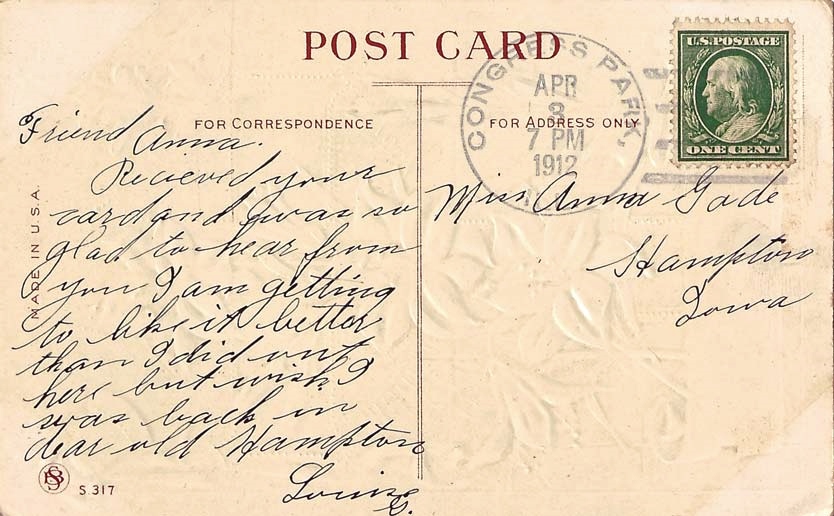 POST CARD
CONGRESS PARK,
APR
3
7 PM
1912
U.S. POSTAGE
ONE CENT
FOR CORRESPONDENCE
FOR ADDRESS ONLY
MADE IN U.S.A.
Friend Anna.
Recieved your
card and was so
glad to hear from
you I am getting
to like it better
than I did out
here but wish I
was back in
dear old Hampton
Louise
G.
Miss Anna Gade
Hampton
Iowa
S. 317